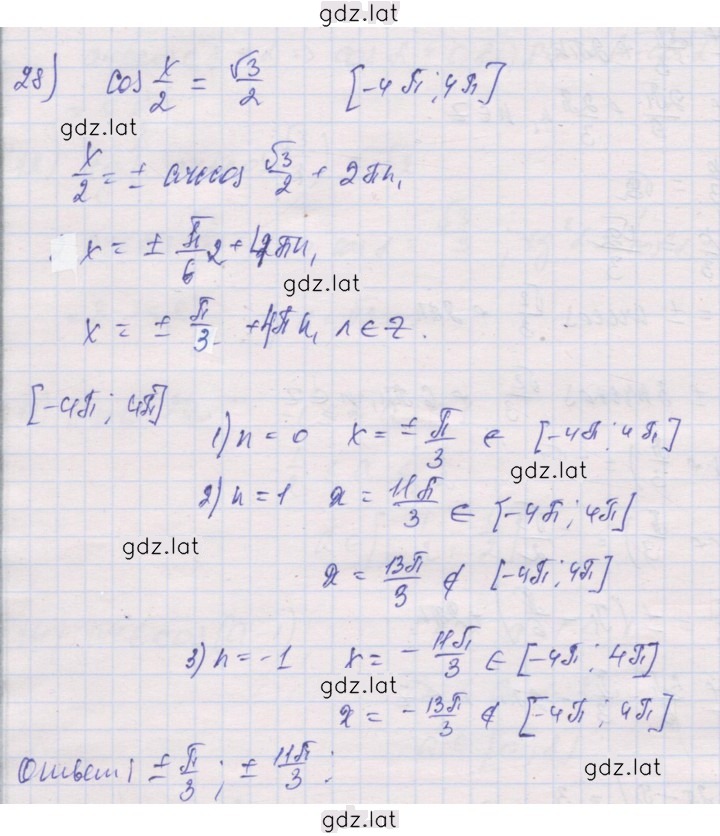 gdz.lat
28) cos x/2 = √3/2 [-4π; 4π]
gdz.lat
x/2 = ± arccos √3/2 + 2πn,
x = ± π/6 · 2 + 4πn,
gdz.lat
x = ± π/3 + 4πn, n ∈ Z.
[-4π; 4π]
1) n = 0 x = ± π/3 ∈ [-4π; 4π]
gdz.lat
2) n = 1 x = 11π/3 ∈ [-4π; 4π]
gdz.lat
x = 13π/3 ∉ [-4π; 4π]
3) n = -1 x = - 11π/3 ∈ [-4π; 4π]
gdz.lat
x = - 13π/3 ∉ [-4π; 4π]
Ответ: ± π/3; ± 11π/3;
gdz.lat
gdz.lat